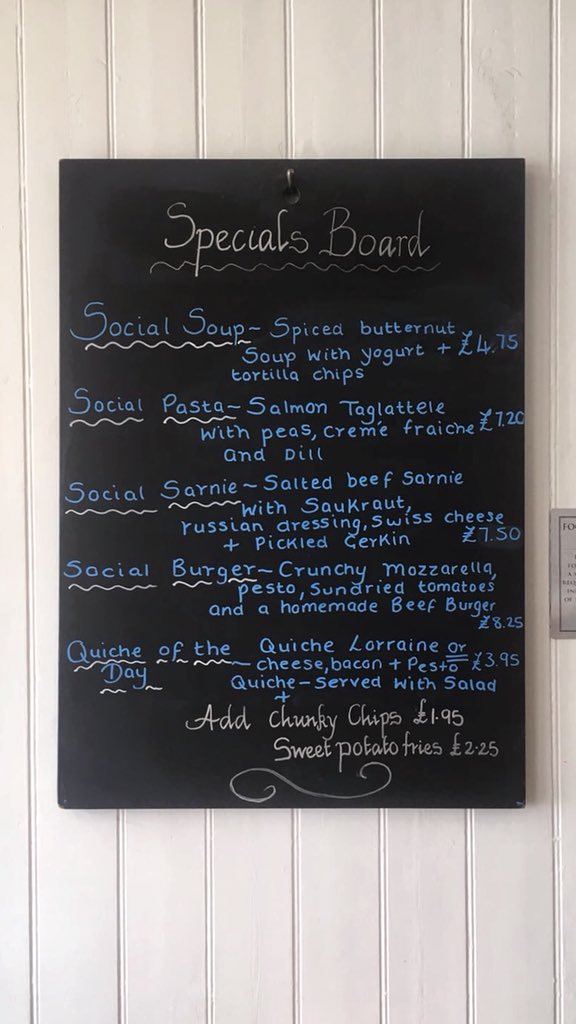 Specials Board
Social Soup~ Spiced butternut
Soup with yogurt + £4.75
tortilla chips
Social Pasta~ Salmon Taglattele
with peas, creme fraiche £7.20
and Dill
Social Sarnie~ Salted beef Sarnie
with Saukraut,
russian dressing, Swiss cheese
+ Pickled Gerkin £7.50
Social Burger~ Crunchy Mozzarella,
pesto, Sundried tomatoes
and a homemade Beef Burger
£8.25
Quiche of the Quiche Lorraine or
Day — cheese, bacon + Pesto £3.95
Quiche - Served with Salad
+
Add Chunky Chips £1.95
Sweet potato fries £2.25